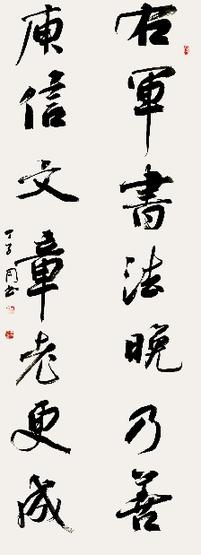 右军書法晚乃善
庾信文章老更成